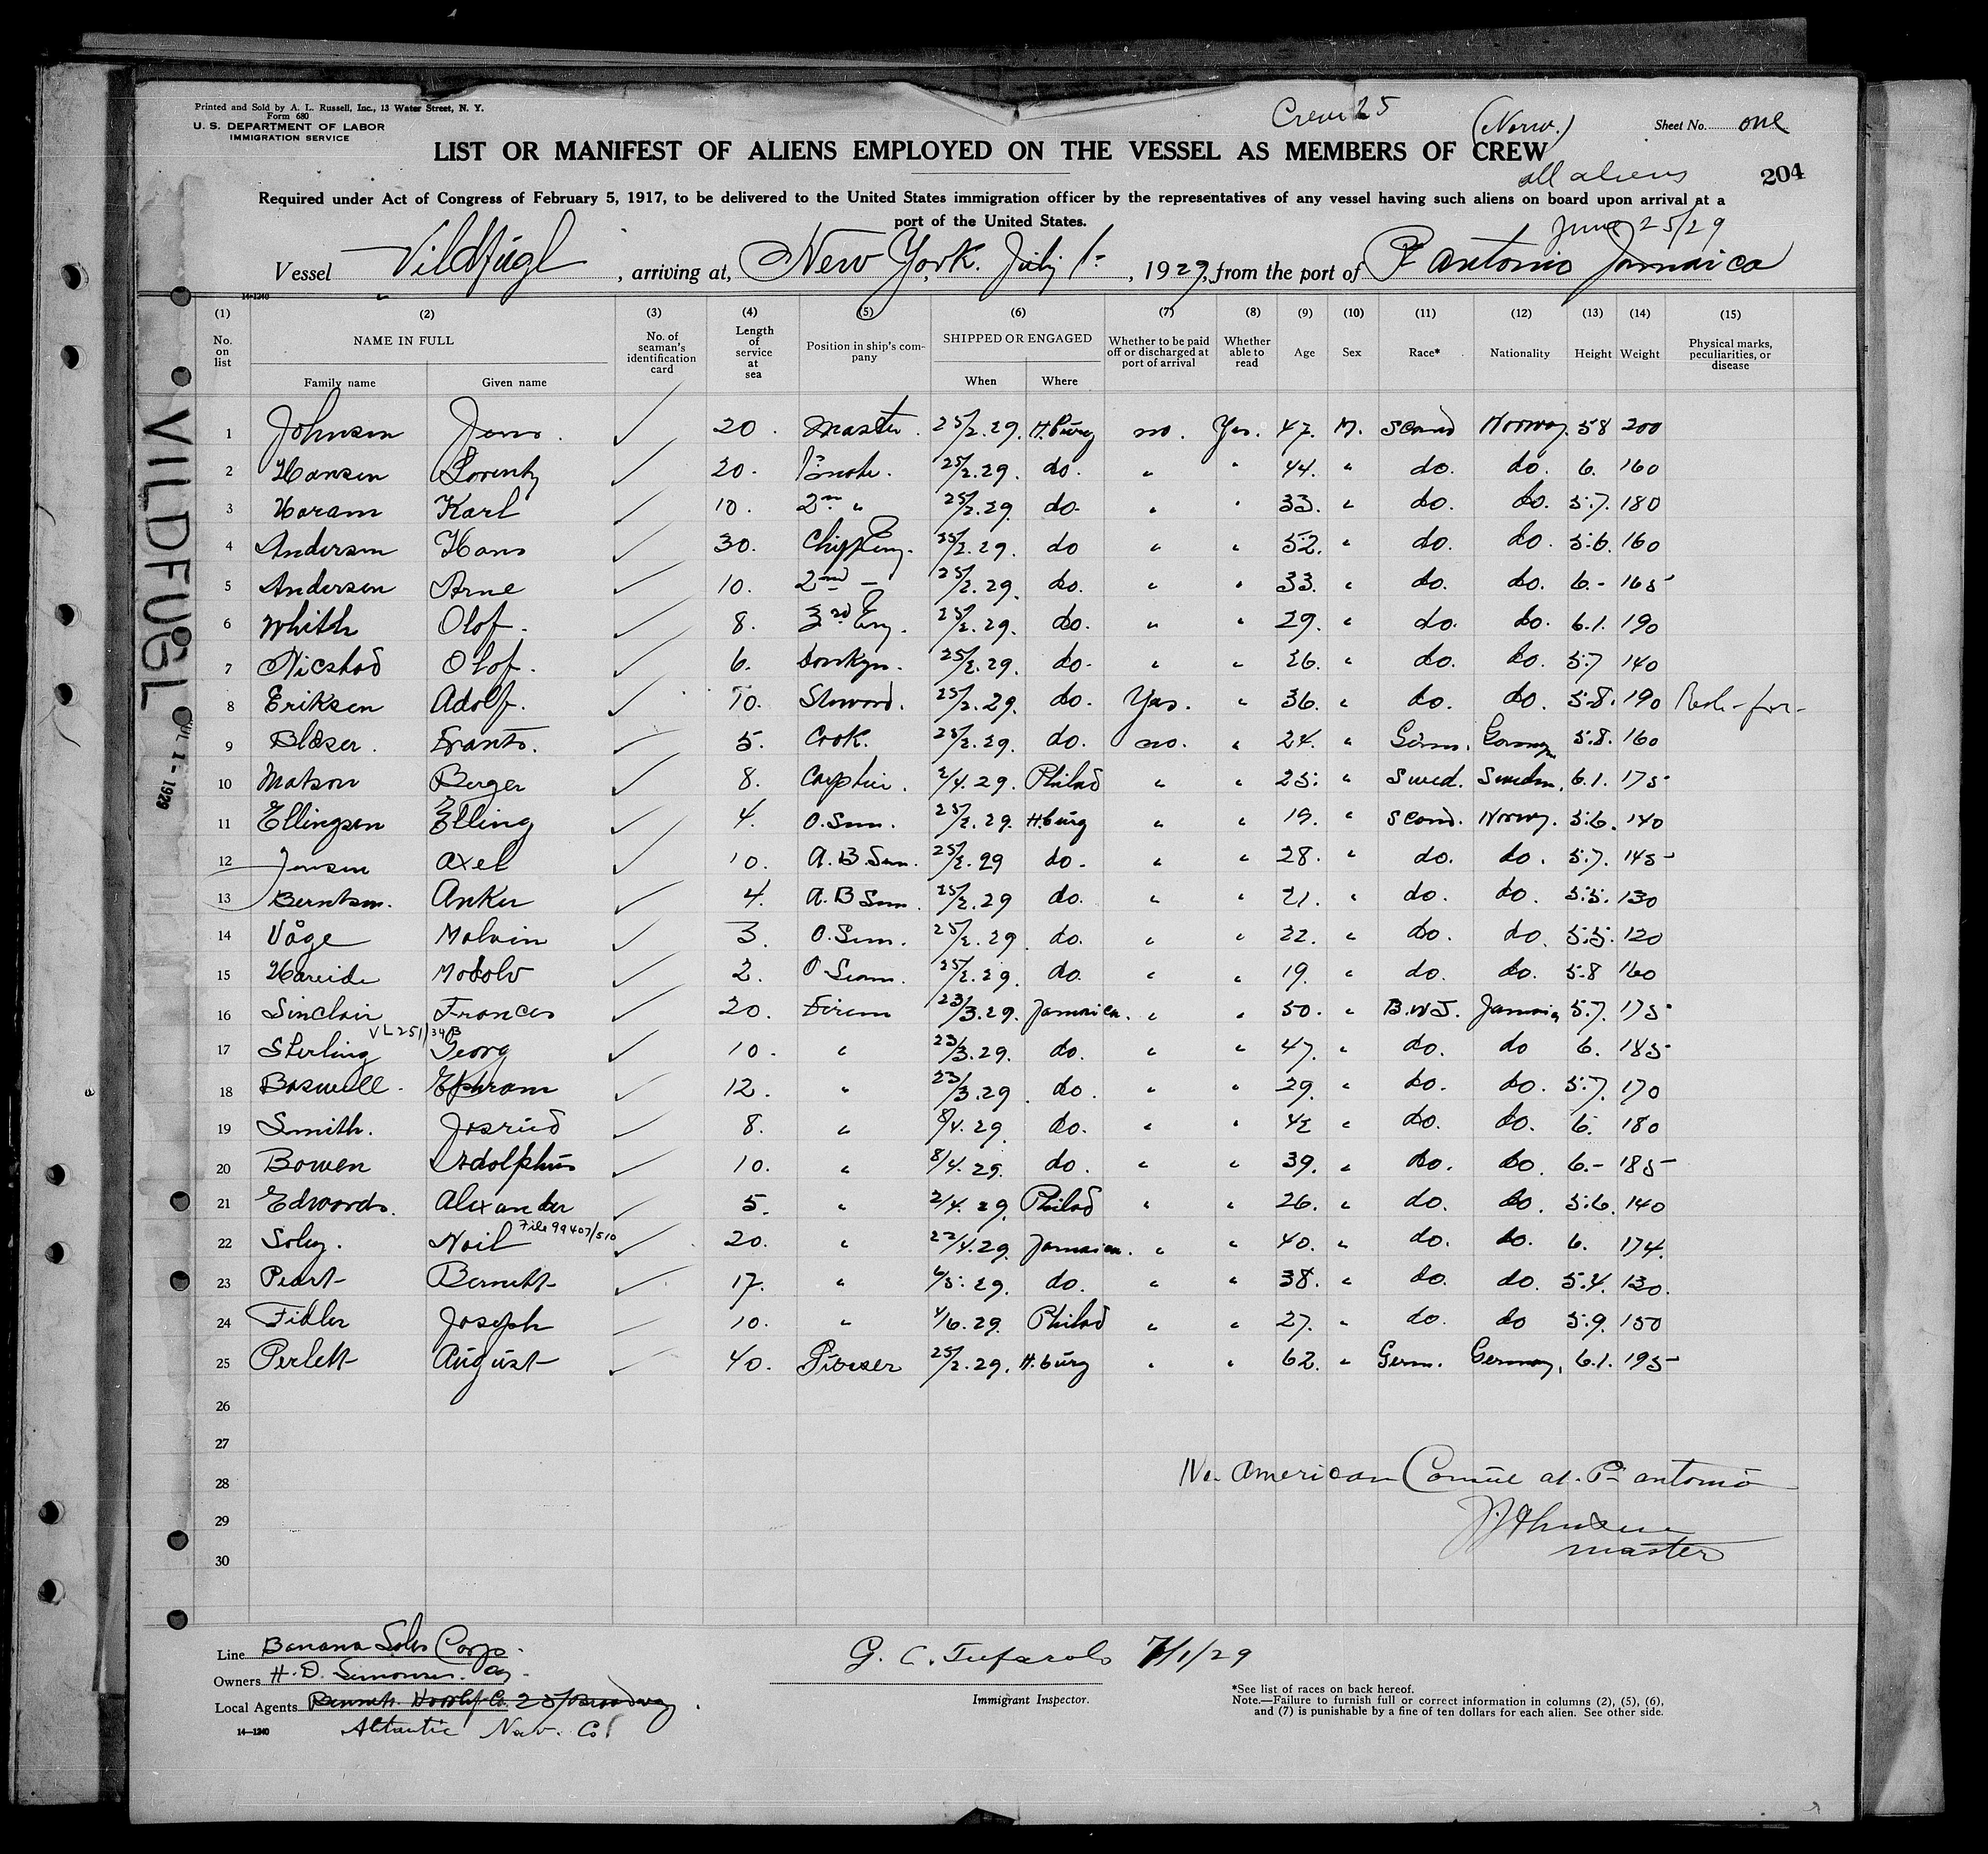 Printed and Sold by A. L. Russell, Inc., 13 Water Street, N. Y.
Form 680
U. S. DEPARTMENT OF LABOR
IMMIGRATION SERVICE
Crew 25
(Norw.)
Sheet No. one
LIST OR MANIFEST OF ALIENS EMPLOYED ON THE VESSEL AS MEMBERS OF CREW
all aliens
204
Required under Act of Congress of February 5, 1917, to be delivered to the United States immigration officer by the representatives of any vessel having such aliens on board upon arrival at a
port of the United States.
June 25/29
Vessel Vildfugl, arriving at, New York. July 1-, 1929, from the port of Pt Antonio Jamaica
14-1240
VILDFUGL
JUL 1 - 1929
(1) (2) (3) (4) (5) (6) (7) (8) (9) (10) (11) (12) (13) (14) (15)
No. on list NAME IN FULL No. of seaman's identification card Length of service at sea Position in ship's company SHIPPED OR ENGAGED Whether to be paid off or discharged at port of arrival Whether able to read Age Sex Race* Nationality Height Weight Physical marks, peculiarities, or disease
Family name Given name When Where
1 Johnsen Jens. ✓ 20. Master. 25/2.29. H.burg no. Yes. 47. M. Scand Norway. 58 200
2 Hansen Lorentz ✓ 20. 25/2.29. do. " " 44. " do. do. 6. 160
3 Haram Karl ✓ 10. 2nd " 25/2.29. do. " " 33. " do. do. 5.7. 180
4 Andersen Hans ✓ 30. Chiff Eng. 25/2.29. do " " 52. " do. do. 5.6. 160
5 Andersen Arne ✓ 10. 2nd — 25/2.29. do. " " 33. " do. do. 6.- 165
6 Whith Olof. ✓ 8. 3rd Eng. 25/2.29. do. " " 29. " do. do. 6.1. 190
7 Olof. ✓ 6. Donkyn. 25/2.29. do. " " 26. " do. do. 5.7 140
8 Eriksen Adolf. ✓ 10. Steward. 25/2.29. do. Yes. " 36. " do. do. 5.8. 190
9 Blaser. Frants. ✓ 5. Cook. 25/2.29. do. no. " 24. " Germ. Germany 5.8. 160
10 Matson Berger ✓ 8. 2/4.29. Philad " " 25. " Swed. Sweden, 6.1. 175
11 Ellingsen Elling ✓ 4. O.Sem. 25/2.29. H.burg " " 19. " Scand. Norway. 5.6. 140
12 Jensen Axel ✓ 10. A.B Sem. 25/2.29 do. " " 28. " do. do. 5.7. 145
13 Berntsen. Anker ✓ 4. A.B Sem. 25/2.29 do. " " 21. " do. do. 5.5. 130
14 Våge Malvin ✓ 3. O.Sem. 25/2.29. do. " " 22. " do. do. 5.5. 120
15 Hareide Modolv ✓ 2. O Seam. 25/2.29. do. " " 19. " do. do. 5.8 160
16 Sinclair Frances ✓ 20. Firem 23/3.29. Jamaica. " " 50. " B.W.I. Jamaica 5.7. 175
17 Sterling Georg ✓ 10. " 23/3.29. do. " " 47. " do. do 6. 185
18 Boswell. Ephram ✓ 12. " 23/3.29. do. " " 29. " do. do. 5.7. 170
19 Smith. ✓ 8. " 8/4.29. do. " " 42 " do. do. 6. 180
20 Bowen Adolphus ✓ 10. " 8/4.29. do. " " 39. " do. do. 6.- 185
21 Edwards. Alexander ✓ 5. " 2/4.29. Philad " " 26. " do. do. 5.6. 140
File 99407/510
22 Soley. Noil ✓ 20. " 22/4.29. Jamaica. " " 40. " do. do. 6. 174.
23 Peart Bernett ✓ 17. " 6/5.29. do. " " 38. " do. do. 5.4. 130.
24 Fidler Joseph 10. " 4/6.29. Philad " " 27. " do. do 5.9. 150
25 Perlett August ✓ 40. 25/2.29. H.burg " " 62. " Germ. Germany, 6.1. 195
26
27
28
29
30
No American Consul at. Pt antonio
J Johnsen
master
Line Banana Sales Corp.
Owners H. D. Simonsen.
Local Agents Bennett. Co. 25 Broadway.
Altantic Nav. Co
14-1240
G. C. Tufarolo 7/1/29
Immigrant Inspector.
*See list of races on back hereof.
Note.—Failure to furnish full or correct information in columns (2), (5), (6),
and (7) is punishable by a fine of ten dollars for each alien. See other side.